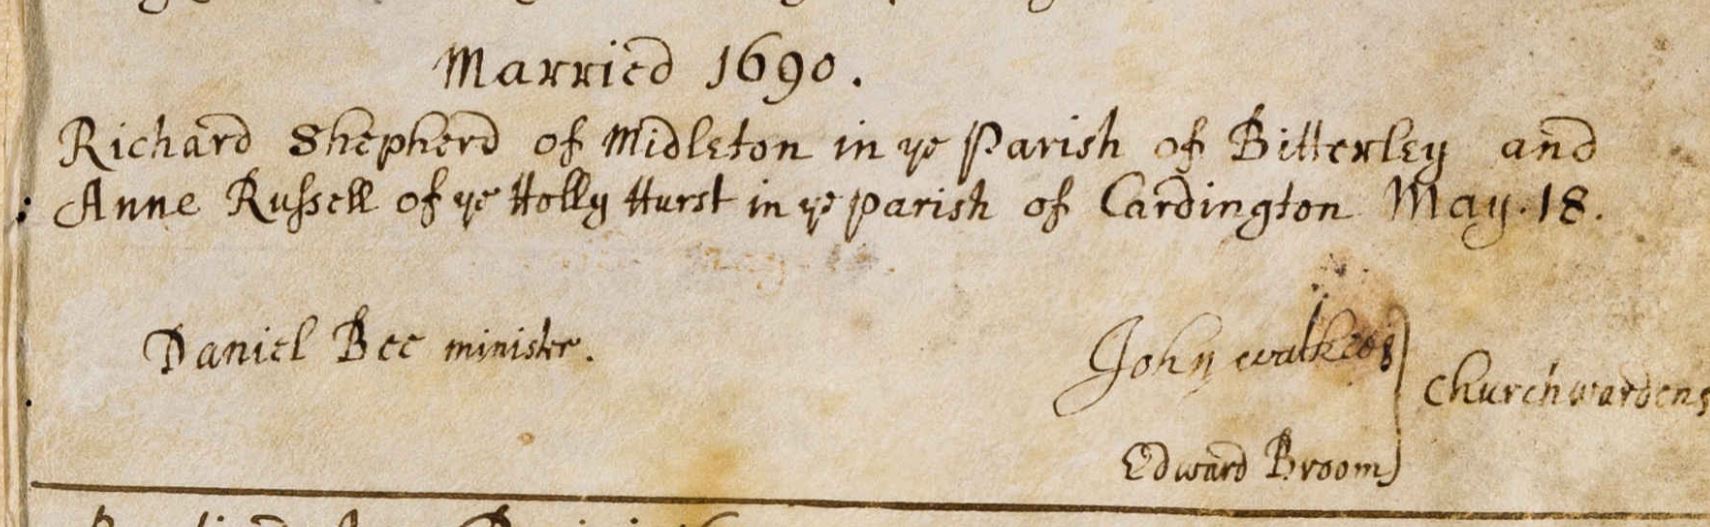 Married 1690.
Richard Shepherd of Midleton in ye Parish of Bitterley and
Anne Russell of ye Holly Hurst in ye parish of Cardington May. 18.
Daniel Bee minister.
John
Churchwardens
Edward Broom